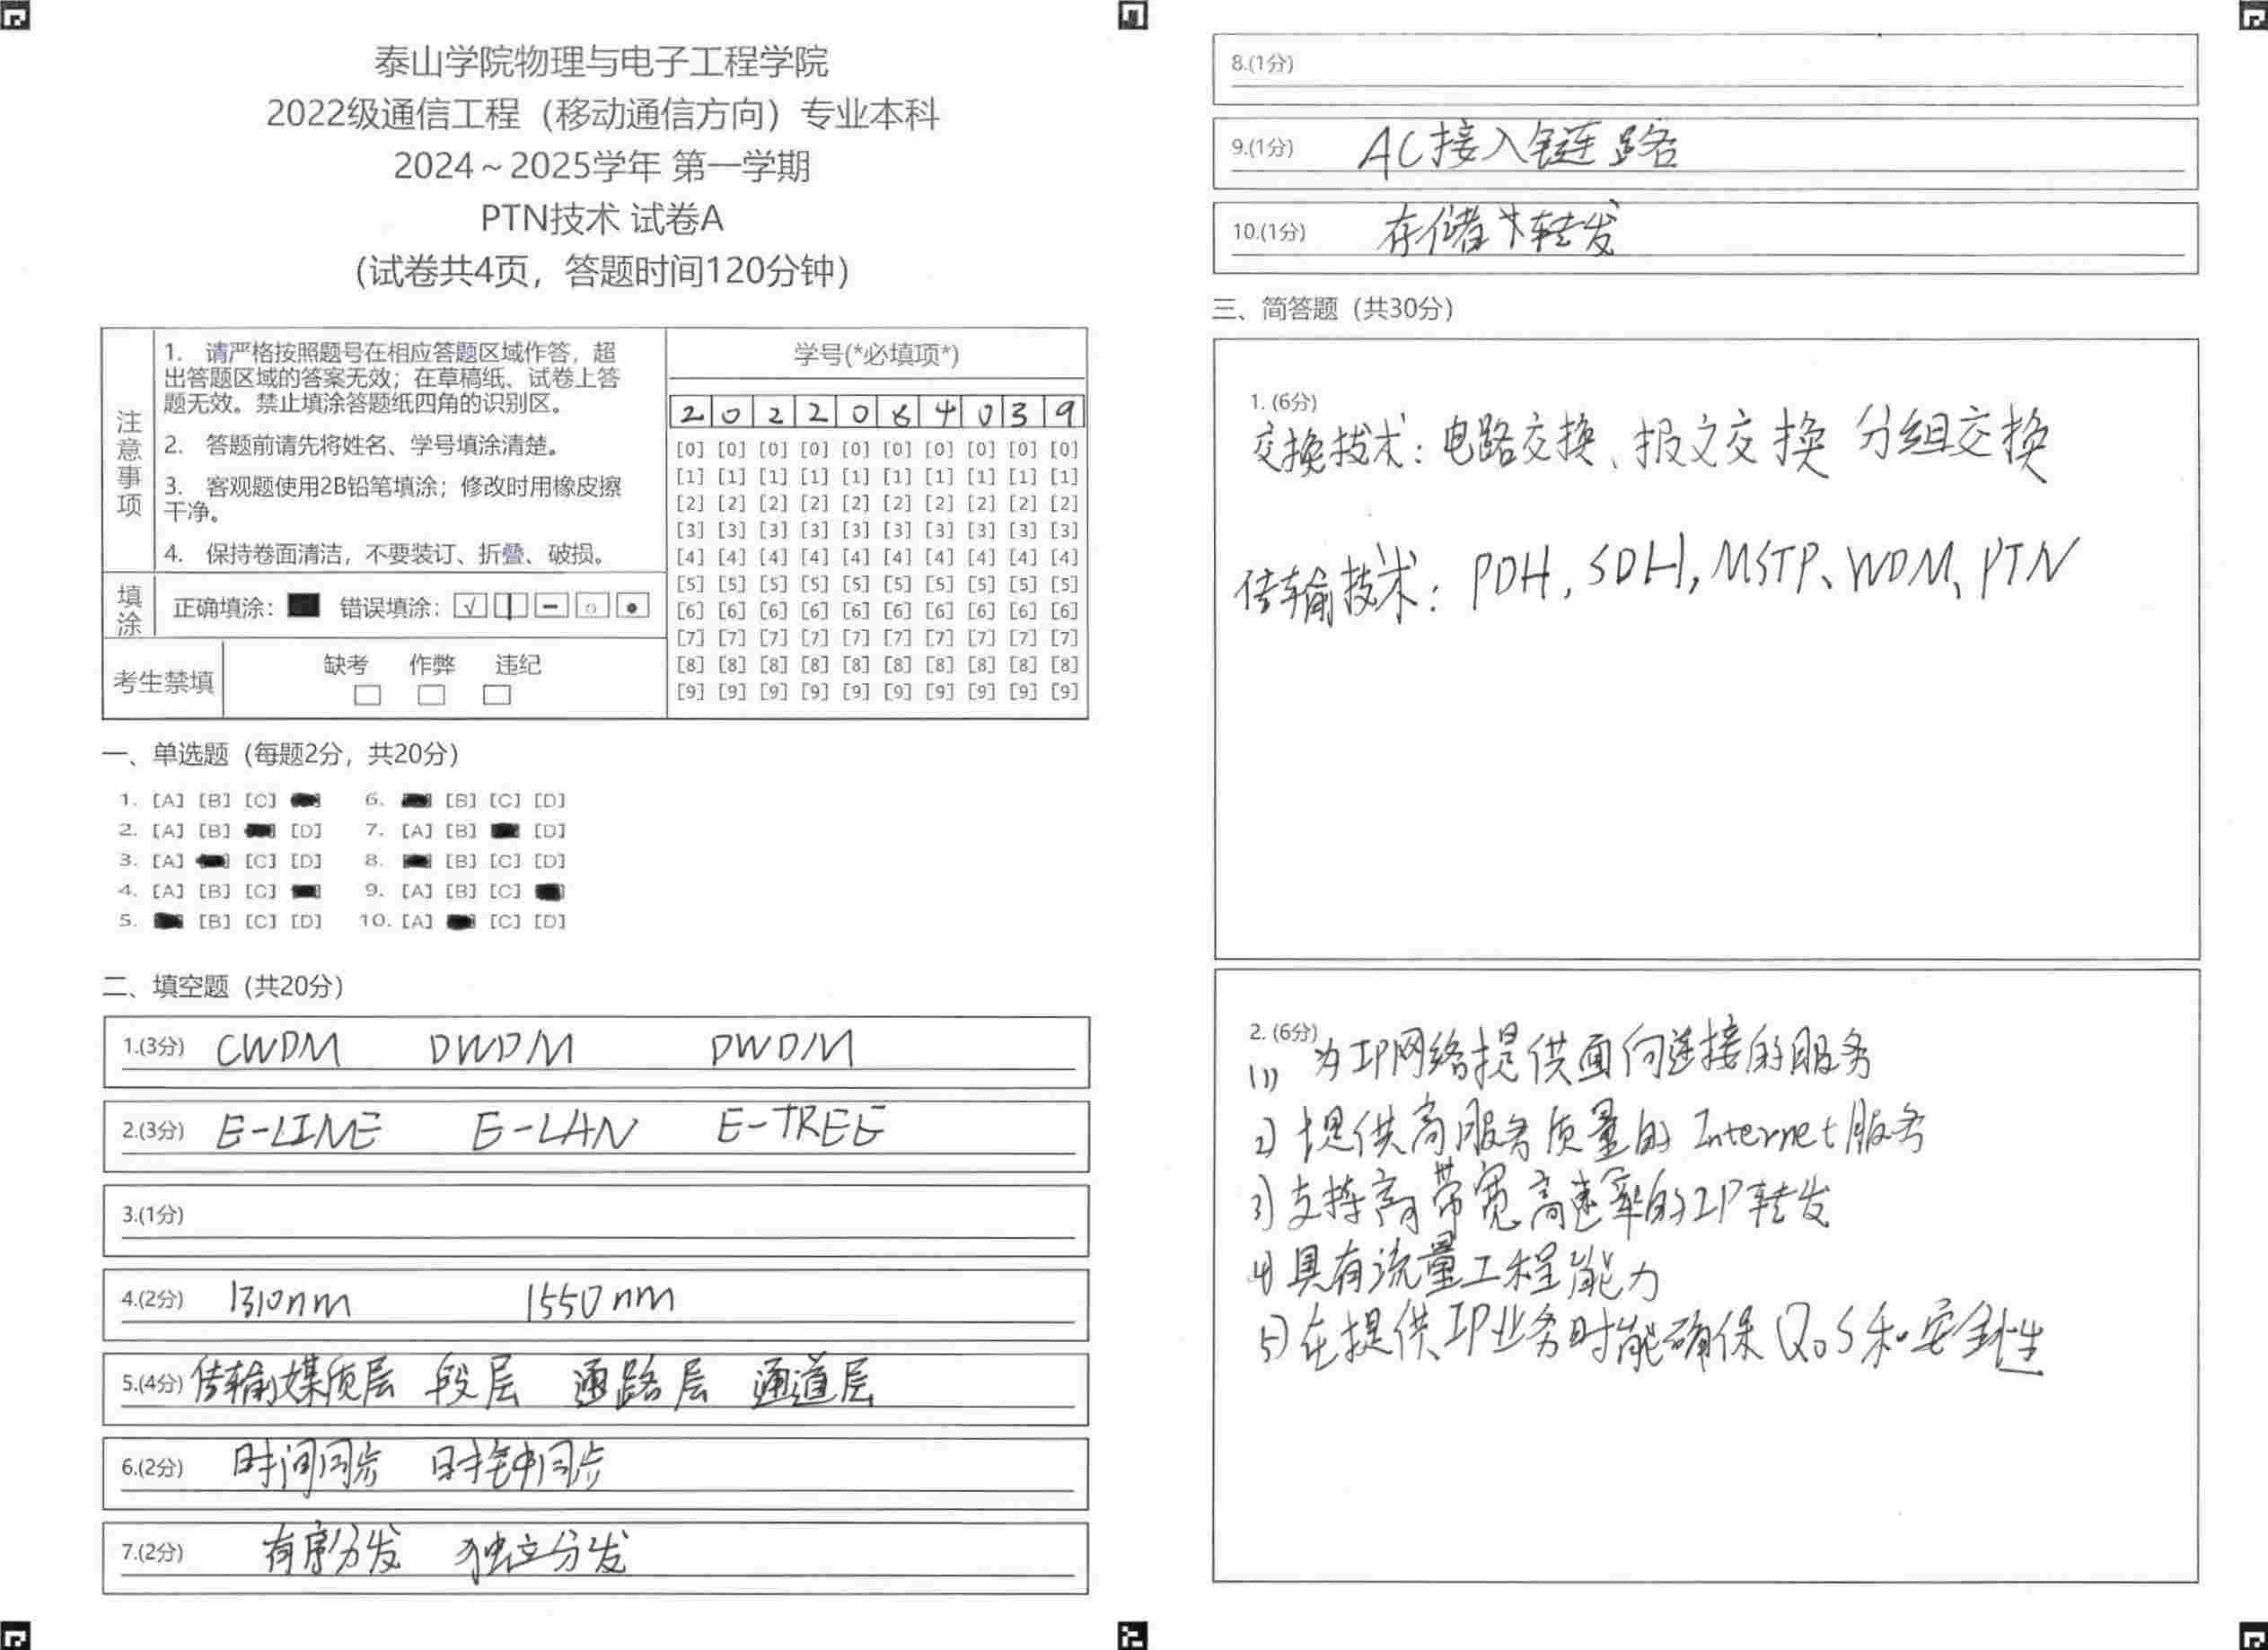 泰山学院物理与电子工程学院
2022级通信工程（移动通信方向）专业本科
2024～2025学年 第一学期
PTN技术 试卷A
(试卷共4页，答题时间120分钟)
注意事项
1. 请严格按照题号在相应答题区域作答，超
出答题区域的答案无效；在草稿纸、试卷上答
题无效。禁止填涂答题纸四角的识别区。
2. 答题前请先将姓名、学号填涂清楚。
3. 客观题使用2B铅笔填涂；修改时用橡皮擦
干净。
4. 保持卷面清洁，不要装订、折叠、破损。
填涂
正确填涂： 错误填涂：
考生禁填
缺考 作弊 违纪
学号(*必填项*)
2 0 2 2 0 8 4 0 3 9
[0] [0] [0] [0] [0] [0] [0] [0] [0] [0]
[1] [1] [1] [1] [1] [1] [1] [1] [1] [1]
[2] [2] [2] [2] [2] [2] [2] [2] [2] [2]
[3] [3] [3] [3] [3] [3] [3] [3] [3] [3]
[4] [4] [4] [4] [4] [4] [4] [4] [4] [4]
[5] [5] [5] [5] [5] [5] [5] [5] [5] [5]
[6] [6] [6] [6] [6] [6] [6] [6] [6] [6]
[7] [7] [7] [7] [7] [7] [7] [7] [7] [7]
[8] [8] [8] [8] [8] [8] [8] [8] [8] [8]
[9] [9] [9] [9] [9] [9] [9] [9] [9] [9]
一、单选题（每题2分，共20分）
1. [A] [B] [C] 6. [B] [C] [D]
2. [A] [B] [D] 7. [A] [B] [D]
3. [A] [C] [D] 8. [B] [C] [D]
4. [A] [B] [C] 9. [A] [B] [C]
5. [B] [C] [D] 10. [A] [C] [D]
二、填空题（共20分）
1.(3分) CWDM DWDM DWDM
2.(3分) E-LINE E-LAN E-TREE
3.(1分)
4.(2分) 1310nm 1550nm
5.(4分) 传输媒质层 段层 通路层 通道层
6.(2分) 时间同步 时钟同步
7.(2分) 有序分发 独立分发
8.(1分)
9.(1分) AC接入链路
10.(1分) 存储转发
三、简答题（共30分）
1. (6分)
交换技术：电路交换、报文交换 分组交换
传输技术：PDH, SDH, MSTP、WDM、PTN
2. (6分)
1) 为IP网络提供面向连接的服务
2) 提供高服务质量的Internet服务
3) 支持高带宽高速率的IP转发
4) 具有流量工程能力
5) 在提供IP业务时能确保QoS和安全性